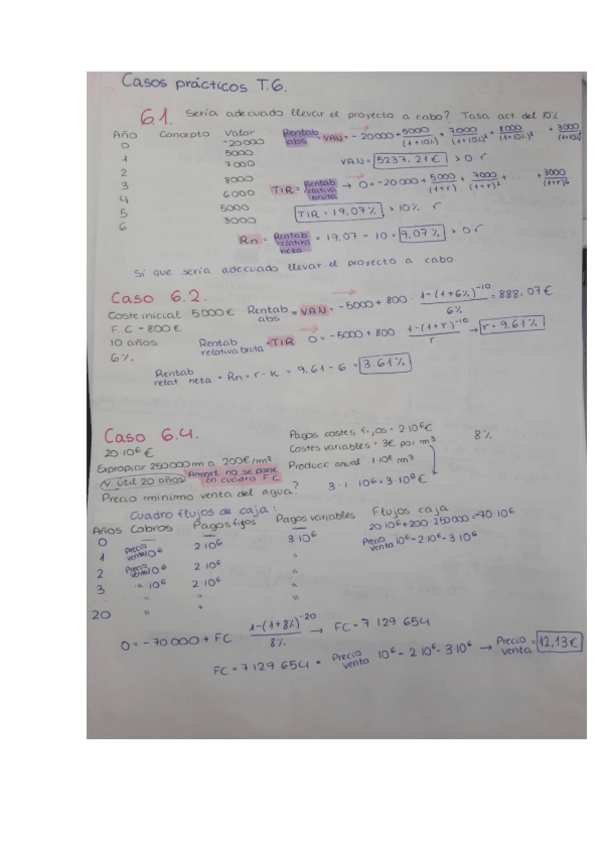 Casos prácticos T.6.
6.1. Sería adecuado llevar el proyecto a cabo? Tasa act del 10%
Año Concepto Valor
0 -20000
1 5000
2 7000
3 8000
4 6000
5 5000
6 3000
Rentab abs = VAN = -20000 + 5000/(1+10%) + 7000/(1+10%)² + 8000/(1+10%)³ + 3000/(1+10%)⁶
VAN = 5237,21€ > 0 r
TIR = Rentab relativa bruta → 0 = -20000 + 5000/(1+r) + 7000/(1+r)² + ... + 3000/(1+r)⁶
TIR = 19,07% > 10% r
Rn = Rentab relativa neta = 19,07 - 10 = 9,07% > 0 r
Sí que sería adecuado llevar el proyecto a cabo
Caso 6.2.
Coste inicial 5000€
F.C = 800€
10 años
6%
Rentab abs = VAN = -5000 + 800 · 1-(1+6%)⁻¹⁰/6% = 888,07€
Rentab relativa bruta = TIR 0 = -5000 + 800 · 1-(1+r)⁻¹⁰/r → r = 9,61%
Rentab relat neta = Rn = r - k = 9,61 - 6 = 3,61%
Caso 6.4.
20·10⁶ €
Expropiar 250000m a 200€/m²
V. útil 20 años Amort. no se pone en cuadro F.C
Precio mínimo venta del agua?
Pagos costes fijos = 2·10⁶€
Costes variables = 3€ por m³
Produce anual 1·10⁶ m³
3·1·10⁶ = 3·10⁶€
8%
Cuadro flujos de caja:
Años Cobros Pagos fijos Pagos variables Flujos caja
0 — — — 20·10⁶+200·250000=-70·10⁶
1 Precio venta·10⁶ 2·10⁶ 3·10⁶ Precio venta 10⁶-2·10⁶-3·10⁶
2 Precio venta·10⁶ 2·10⁶ "
3 " 10⁶ 2·10⁶ "
" " "
20 " " "
0 = -70000 + FC 1-(1+8%)⁻²⁰/8% → FC = 7 129 654
FC = 7 129 654 = Precio venta · 10⁶ - 2·10⁶ - 3·10⁶ → Precio venta = 12,13€